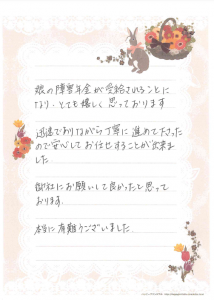 娘の障害年金が受給されることに
なり、とても嬉しく思っております
迅速でありながら丁寧に進めて下さった
ので安心してお任せすることが出来ま
した
御社にお願いして良かったと思って
おります
本当に有難うございました